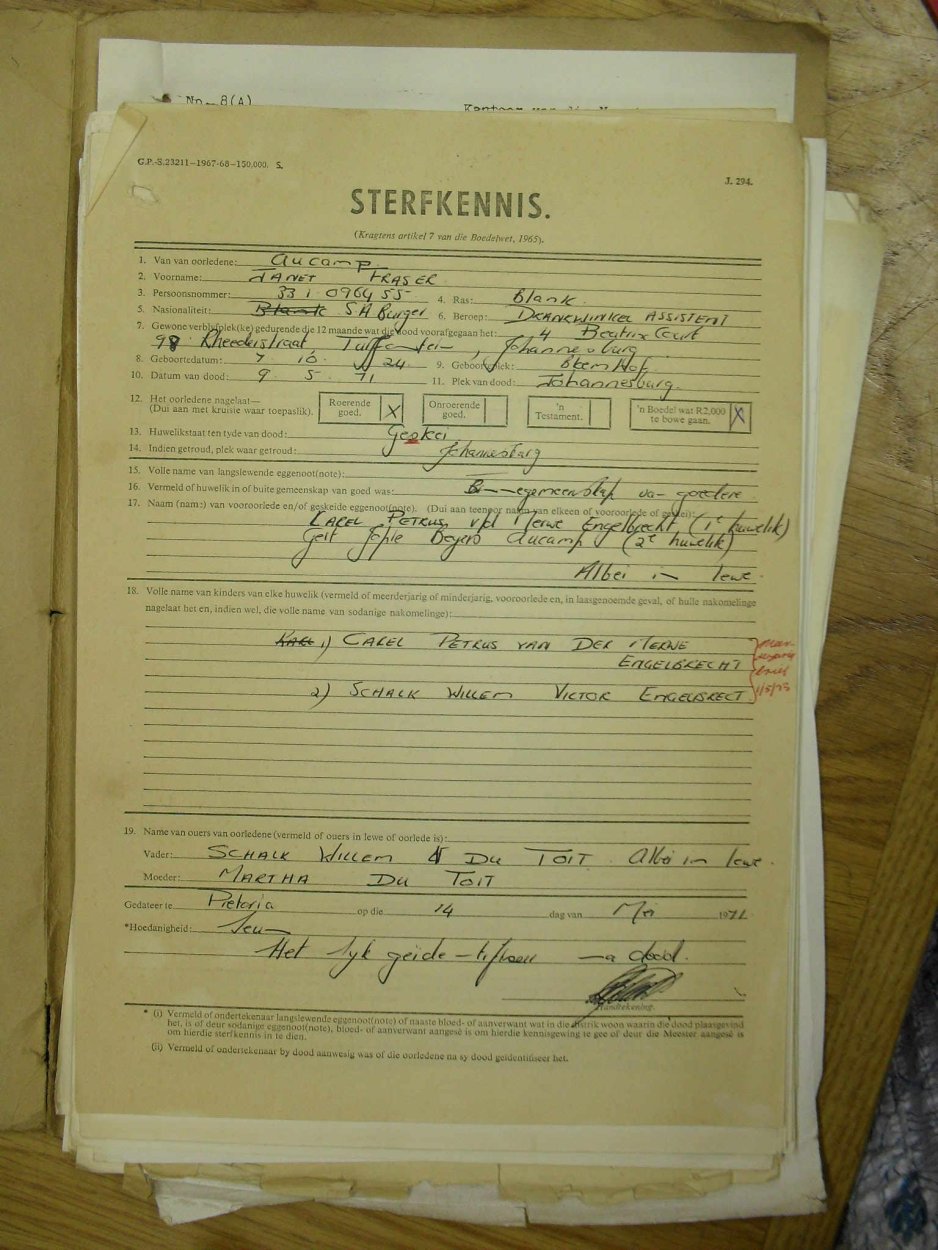 No. 8(A)
G.P.-S.23211—1967-68—150,000. S.
J. 294.
STERFKENNIS.
(Kragtens artikel 7 van die Boedelwet, 1965).
1. Van van oorledene: Aucamp.
2. Voorname: JANET FRASER
3. Persoonsnommer: 331 096455 4. Ras: Blank.
5. Nasionaliteit: Blank SA Burger 6. Beroep: DRANKWINKEL ASSISTENT
7. Gewone verblyfplek(ke) gedurende die 12 maande wat die dood voorafgegaan het: 4 Beatrix Court
98 Rheederstraat, Turffontein, Johannesburg
8. Geboortedatum: 7 10 24 9. Geboorteplek: Bloemhof
10. Datum van dood: 9. 5. 71 11. Plek van dood: Johannesburg.
12. Het oorledene nagelaat— Roerende goed. X Onroerende goed. 'n Testament. 'n Boedel wat R2,000 te bowe gaan. X
(Dui aan met kruisie waar toepaslik).
13. Huwelikstaat ten tyde van dood: Geskei
14. Indien getroud, plek waar getroud: Johannesburg
15. Volle name van langslewende eggenoot(note):
16. Vermeld of huwelik in of buite gemeenskap van goed was: gemeenskap van goedere
17. Naam (name) van vooroorlede en/of geskeide eggenoot(note). (Dui aan teenoor naam van elkeen of vooroorlede of geskei):
CAREL PETRUS v/d Merwe Engelbrecht (1e huwelik)
Beyers Aucamp (2e huwelik)
Albei in lewe.
18. Volle name van kinders van elke huwelik (vermeld of meerderjarig of minderjarig, vooroorlede en, in laasgenoemde geval, of hulle nakomelinge
nagelaat het en, indien wel, die volle name van sodanige nakomelinge):
1) CAREL PETRUS VAN DER MERWE
ENGELBRECHT
2) SCHALK WILLEM VICTOR ENGELBRECT
19. Name van ouers van oorledene (vermeld of ouers in lewe of oorlede is):
Vader: SCHALK WILLEM DU TOIT Albei in lewe.
Moeder: MARTHA DU TOIT
Gedateer te Pretoria op die 14 dag van Mei 1971
*Hoedanigheid: Seun
Het lyk geidentifiseer na dood.
Handtekening.
* (i) Vermeld of ondertekenaar langslewende eggenoot(note) of naaste bloed- of aanverwant wat in die distrik woon waarin die dood plaasgevind
het, is of deur sodanige eggenoot(note), bloed- of aanverwant aangesê is om hierdie kennisgewing te gee of deur die Meester aangesê is
om hierdie sterfkennis in te dien.
(ii) Vermeld of ondertekenaar by dood aanwesig was of die oorledene na sy dood geïdentifiseer het.